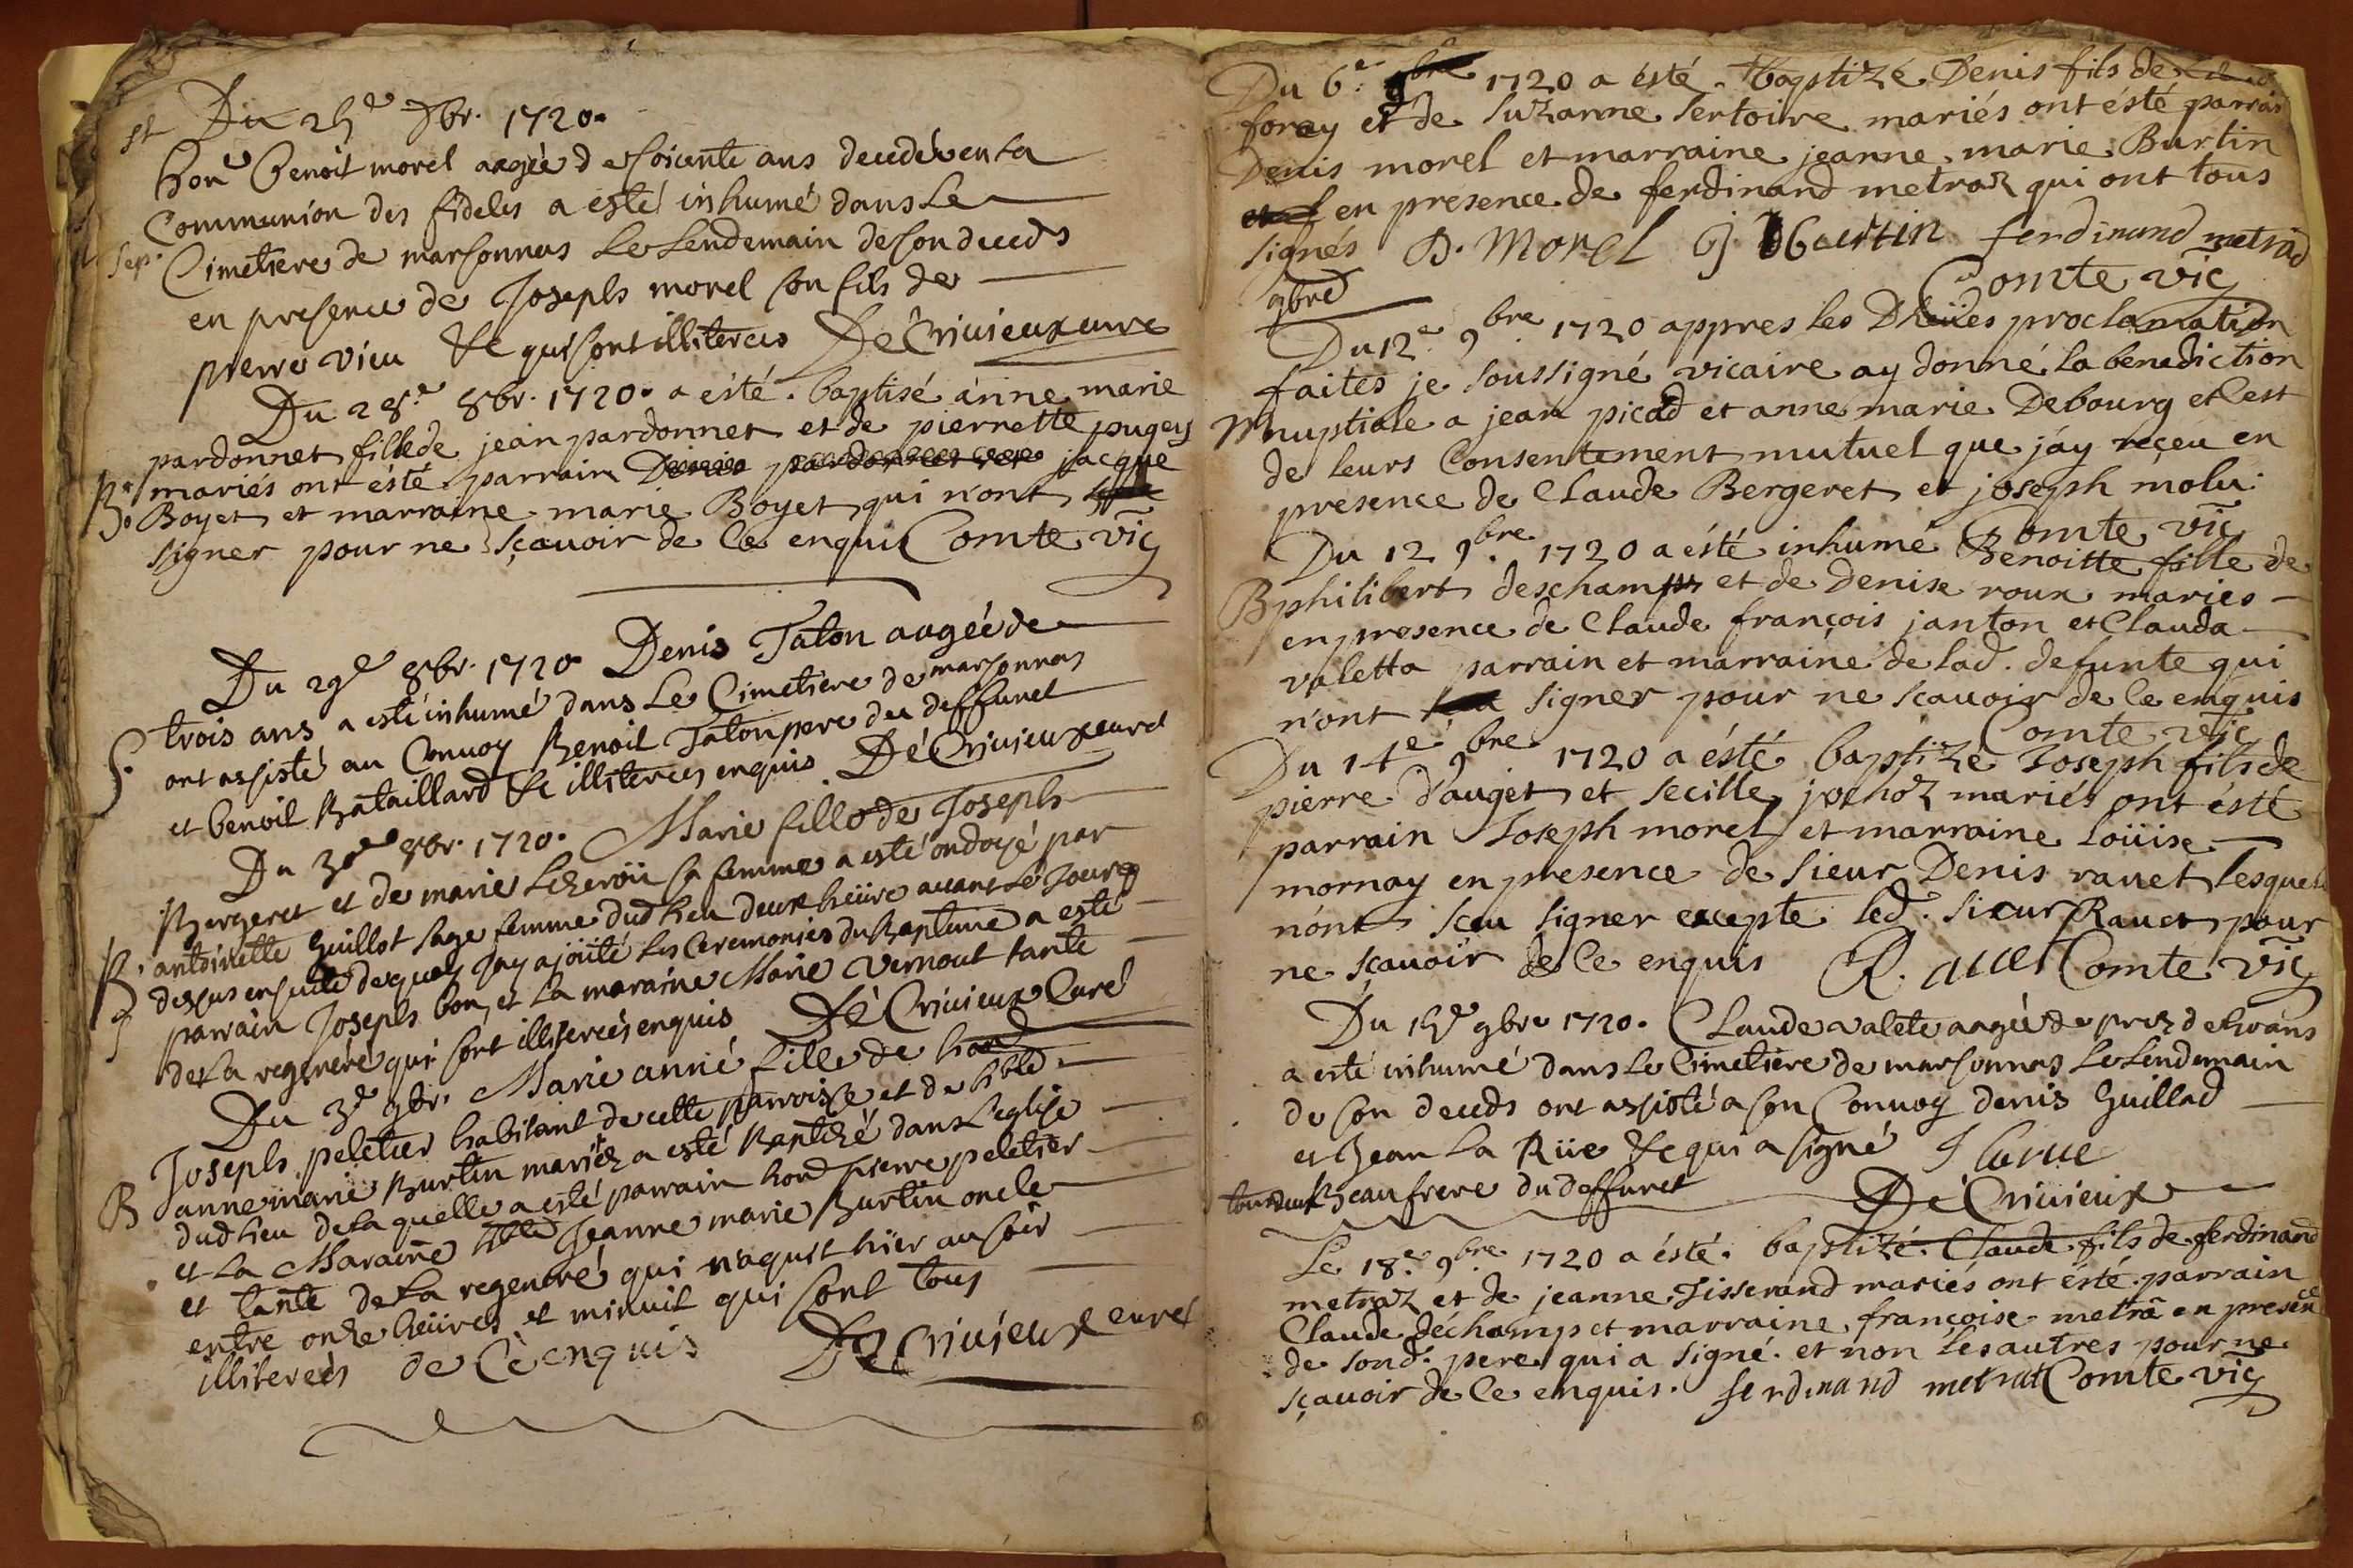 st Du 25e 7br. 1720.
hon̄e Benoit morel aagée de soicente ans decedé en La
Communion des fideles a esté inhumé dans Le
sep. Cimetiere de marsonnas Le Lendemain de son deceds
en presence de Joseph morel son fils de
pierre vieu &c qui sont illiterees De Crivieux curé
Du 28.e 8br. 1720. a ésté baptisé anne marie
pardonnet fille de jean pardonnet et de pierrette pugeys
mariés ont ésté parrain Denis pardonnet jacque
B. Boyet et marraine marie Boyet qui n'ont
signer pour ne sçavoir de Ce enquis Comte vic
Du 29e 8br. 1720 Denis Taton aagée de
trois ans a esté inhumé dans Le Cimetiere de marsonnas
S. ont assisté au Convoy Benoit Taton pere du deffunct
et benoit Bataillard &c illiterees enquis De Crivieux curé
Du 30e 8br. 1720. Marie fille de Joseph
Bergeret et de marie sa femme a esté ondoyé par
B. antoinette Guillot sage femme dud lieu deux heüre avant Le Jour
dessus ensuite de quoy Jay ajoûté Les Ceremonies du Baptême a esté
parrain Joseph bon, et La maraine Marie vernout tante
de La regeneré qui sont illiterées enquis De Crivieux Curé
Du 3e 9br. Marie anne fille de hond
Joseph peletier habitant de cette parroisse et de hble
B anne marie Burtin mariéz a esté Baptizé dans L'eglise
dud lieu de La quelle a esté parrain hond pierre peletier
et La Maraine hble Jeanne marie Burtin oncle
et tante de La regeneré qui naquit hïer au soir
entre onze heüres et minuit qui sont tous
illiterees de Cè enquis De Crivieux curé
Du 6.e 9bre 1720 a ésté baptizé Denis fils de
foray et de Suzanne Sertoire mariés ont ésté parrain
Denis morel et marraine jeanne marie Burtin
et en presence de ferdinand metraz qui ont tous
signés D. Morel j Burtin ferdinand metrad
9bre Comte vic
Du 12.e 9bre. 1720 appres les Dheües proclamation
faites je soussigné vicaire ay donné la benediction
M nuptiale a jean picad et anne marie Debourg et cest
de leurs Consentement mutuel que jáy reçeu en
presence de Claude Bergeret et joseph molu.
Comte vic
Du 12 9bre. 1720 a ésté inhumé Benoitte fille de
B philibert deschamps et de Denise roux mariés
en presence de Claude françois janton et Clauda
valetta parrain et marraine de lad. defunte qui
n'ont signer pour ne sçavoir de Ce enquis
Comte vic
Du 14e 9bre 1720 a ésté baptizé Joseph fils de
pierre dauget et Secille jochoz mariés ont ésté
parrain Joseph morel et marraine Loüise
mornay en presence de Sieur Denis ravet lesquels
nónt sceu signer excepte led. Sieur Ravet pour
ne sçavoir de Ce enquis R. avet Comte vic
Du 15e 9bre 1720. Claude valete aagée de prez de ans
a esté inhumé dans Le Cimetiere de marsonnas Le Lendemain
de son deceds ont assisté a son Convoy denis Guillad
et Jean La Rüe &c qui a signé J larue
tous deux Beaufrere du deffunct De Crivieux
Le 18.e 9bre. 1720 a ésté baptizé Claude fils de ferdinand
metraz et de jeanne Tisserand mariés ont ésté parrain
Claude Déchamps et marraine françoise metrā en presence
de sond. pere qui a signé. et non les autres pour ne
sçavoir de Ce enquis. ferdinand metrat Comte vic